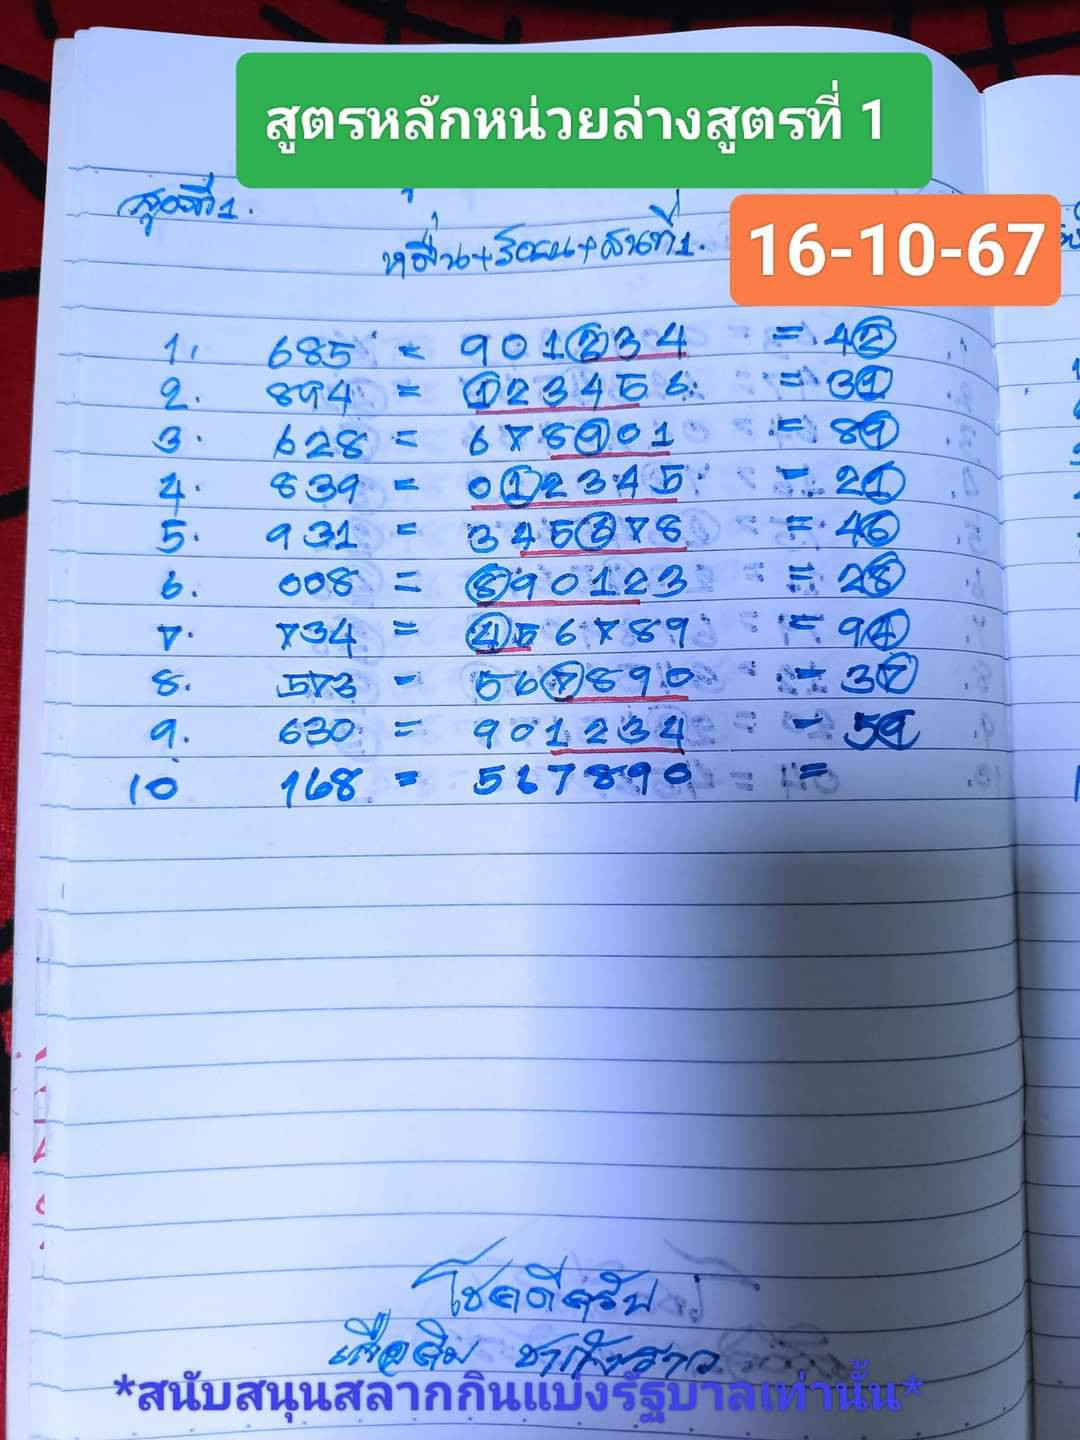 สูตรหลักหน่วยล่างสูตรที่ 1
16-10-67
หมื่น+ร้อย+สิบที่1.
1. 685 = 901234 = 42
2. 894 = 123456 = 31
3. 628 = 678901 = 89
4. 839 = 012345 = 21
5. 931 = 345678 = 46
6. 008 = 890123 = 28
7. 734 = 456789 = 94
8. 573 = 567890 = 37
9. 630 = 901234 = 59
10 168 = 567890 =
โชคดีครับ
*สนับสนุนสลากกินแบ่งรัฐบาลเท่านั้น*